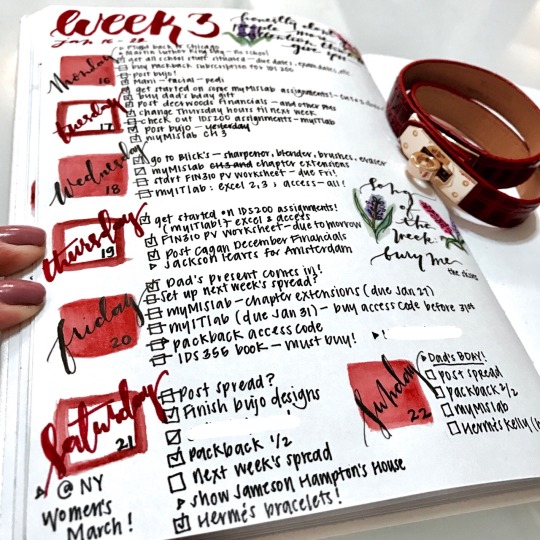 week 3
Jan 16-22
Monday
16
Flight back to Chicago
Martin Luther King Day - no school!
get all school stuff situated - due dates, exam dates, etc
buy packback subscription for IDS 200
post bujo!
Mani-facial-pedi
Tuesday
17
get started on some myMISlab assignments!
buy dad's bday gift
post deetwoods Financials - and other pms
change Thursday hours til next week
check out IDS200 assignments - myITlab
post bujo - yesterday
myMISlab ch 3
Wednesday
18
go to Blick's - sharpener, blender, brushes, eraser
myMISlab ch 3 and chapter extensions
start FIN310 PV worksheet - due Fri!
myITlab: excel 2,3; access - all!
thursday
19
get started on IDS200 assignments!
(myITlab!) - excel & access
FIN310 PV worksheet - due tomorrow
Post Cagan December Financials
Jackson leaves for Amsterdam
song
of the
week
bury me
friday
20
Dad's present comes in!
Set up next week's spread?
myMISlab - chapter extensions (due Jan 27)
myITlab (due Jan 31) - buy access code before 31st
packback access code
IDS 355 book - must buy!
Saturday
21
Post spread?
Finish bujo designs
packback 1/2
next week's spread
show Jameson Hampton's House
Hermès bracelets!
@ NY
Women's
March!
Sunday
22
Dad's BDAY!
post spread
packback 2/2
myMISlab
Hermès Kelly